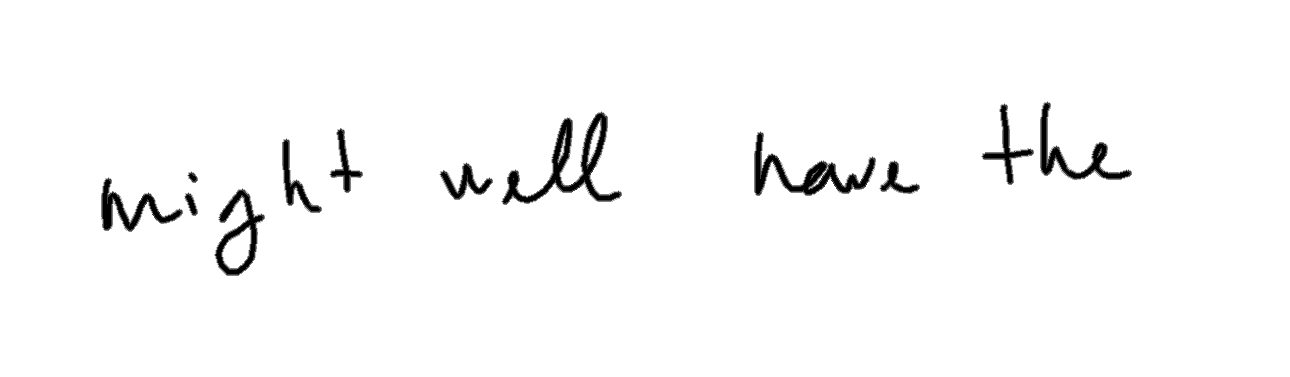 might well have the